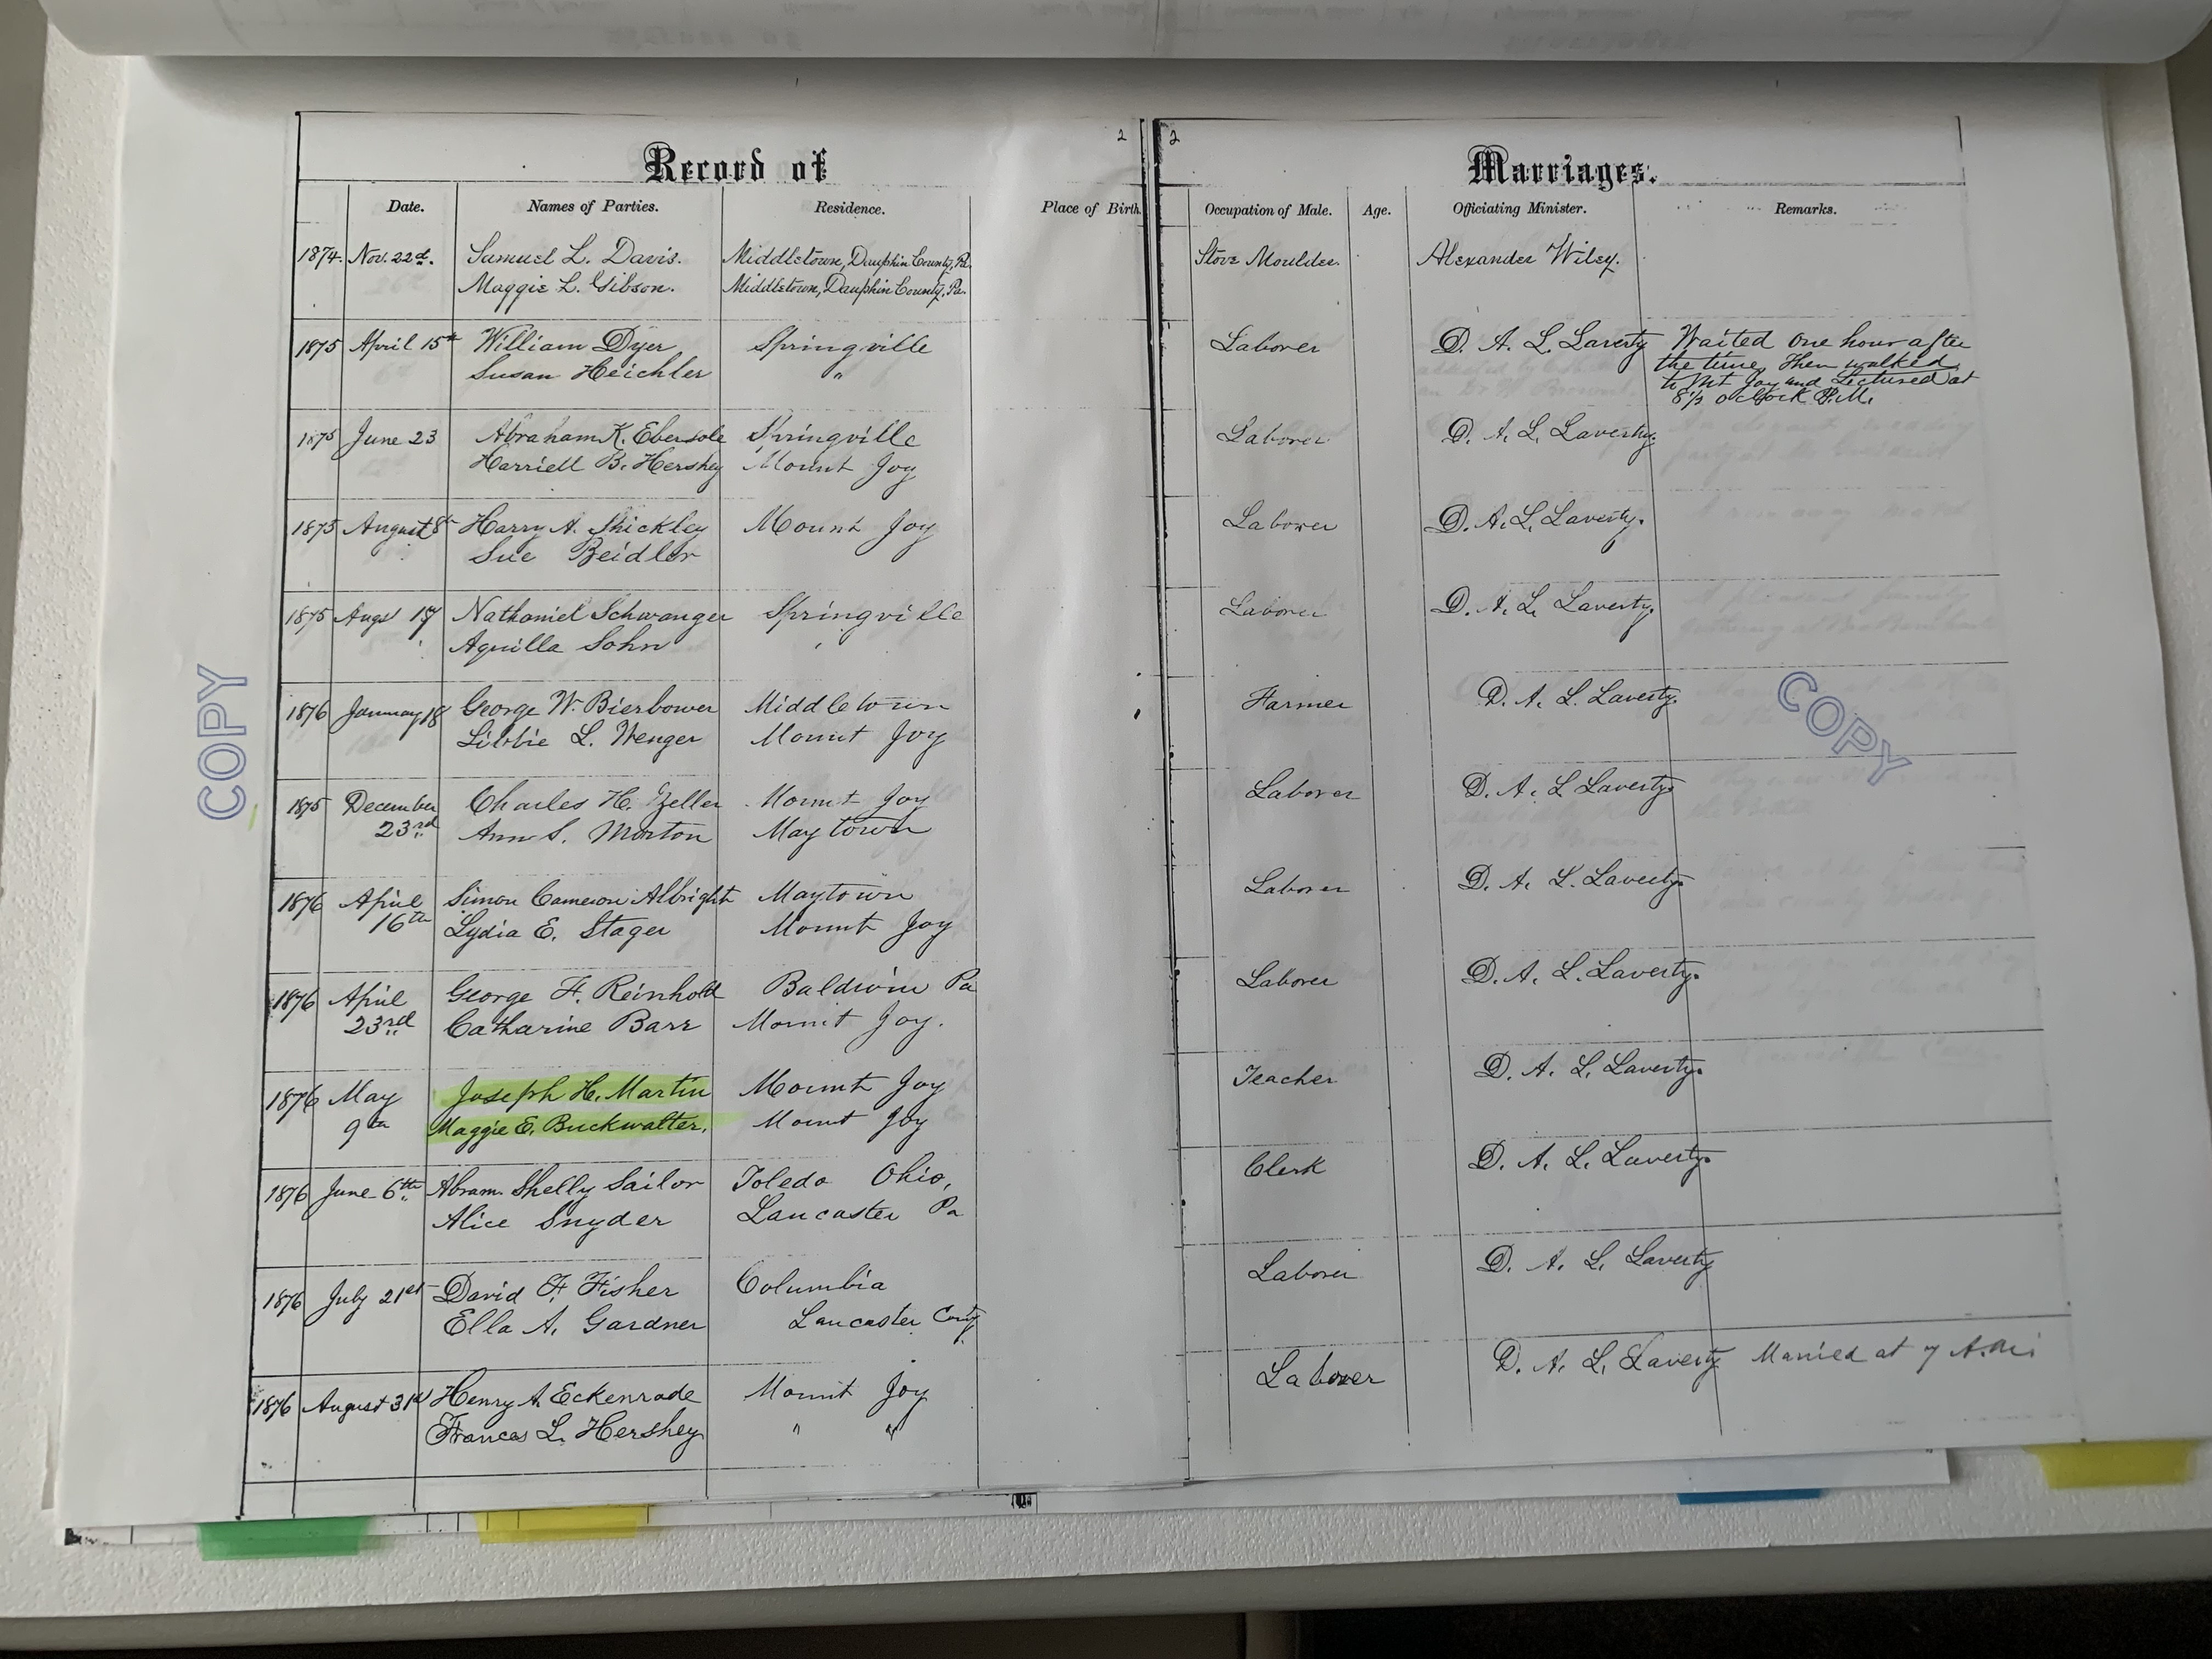 2 2
Record of Marriages.
Date. Names of Parties. Residence. Place of Birth. Occupation of Male. Age. Officiating Minister. Remarks.
1874. Nov. 22d. Samuel L. Davis. Middletown, Dauphin County, Pa. Stove Moulder. Alexander Wiley.
Maggie L. Gibson. Middletown, Dauphin County, Pa.
1875 April 15th William Dyer Springville Laborer D. A. L. Laverty Waited one hour after
Susan Heichler " the time, then walked
to Mt Joy and Lectured at
8 1/2 oclock P.M.
1875 June 23 Abraham K. Ebersole Springville Laborer D. A. L. Laverty.
Harriell B. Hershey Mount Joy
1875 August 8 Harry A. Shickley Mount Joy Laborer D. A. L. Laverty.
Sue Beidler
1875 Augs 17 Nathaniel Schwanger Springville Laborer D. A. L. Laverty.
Aquilla Sohn "
1876 January 18 George W. Bierbower Middletown Farmer D. A. L. Laverty.
Libbie L. Wenger Mount Joy
1875 December Charles H. Zeller Mount Joy Laborer D. A. L. Laverty.
23rd Ann S. Morton Maytown
1876 April Simon Cameron Albright Maytown Laborer D. A. L. Laverty.
16th Lydia E. Stager Mount Joy
1876 April George F. Reinhold Baldwin Pa Laborer D. A. L. Laverty.
23rd Catharine Barr Mount Joy.
1876 May Joseph H. Martin Mount Joy Teacher D. A. L. Laverty.
9th Maggie E. Buckwalter. Mount Joy
1876 June 6th Abram Shelly Sailor Toledo Ohio, Clerk D. A. L. Laverty.
Alice Snyder Lancaster Pa
1876 July 21st David F. Fisher Columbia Laborer D. A. L. Laverty
Ella A. Gardner Lancaster Conty
1876 August 31st Henry A. Eckenrode Mount Joy Laborer D. A. L. Laverty Married at 7 A.M.
Frances L. Hershey " "
COPY
COPY